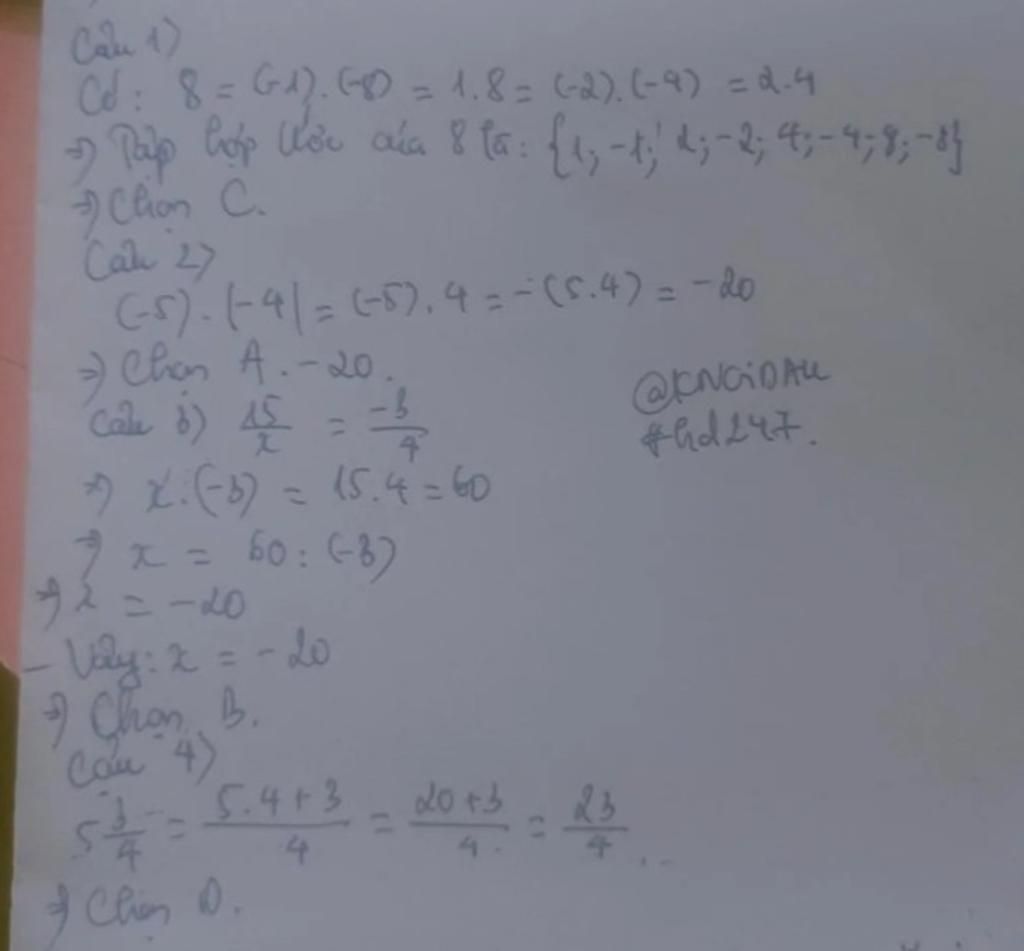 Câu 1)
Có: 8 = (-1).(-8) = 1.8 = (-2).(-4) = 2.4
=> Tập hợp Ước của 8 là: {1; -1; 2; -2; 4; -4; 8; -8}
=> Chọn C.
Câu 2)
(-5).|-4| = (-5).4 = -(5.4) = -20
=> Chọn A. -20.
@KNGiDAU
#hd247.
Câu 3) 15/x = -3/4
=> x.(-3) = 15.4 = 60
=> x = 60 : (-3)
=> x = -20
- Vậy: x = -20
=> Chọn B.
Câu 4)
5 3/4 = 5.4+3/4 = 20+3/4 = 23/4
=> Chọn D.